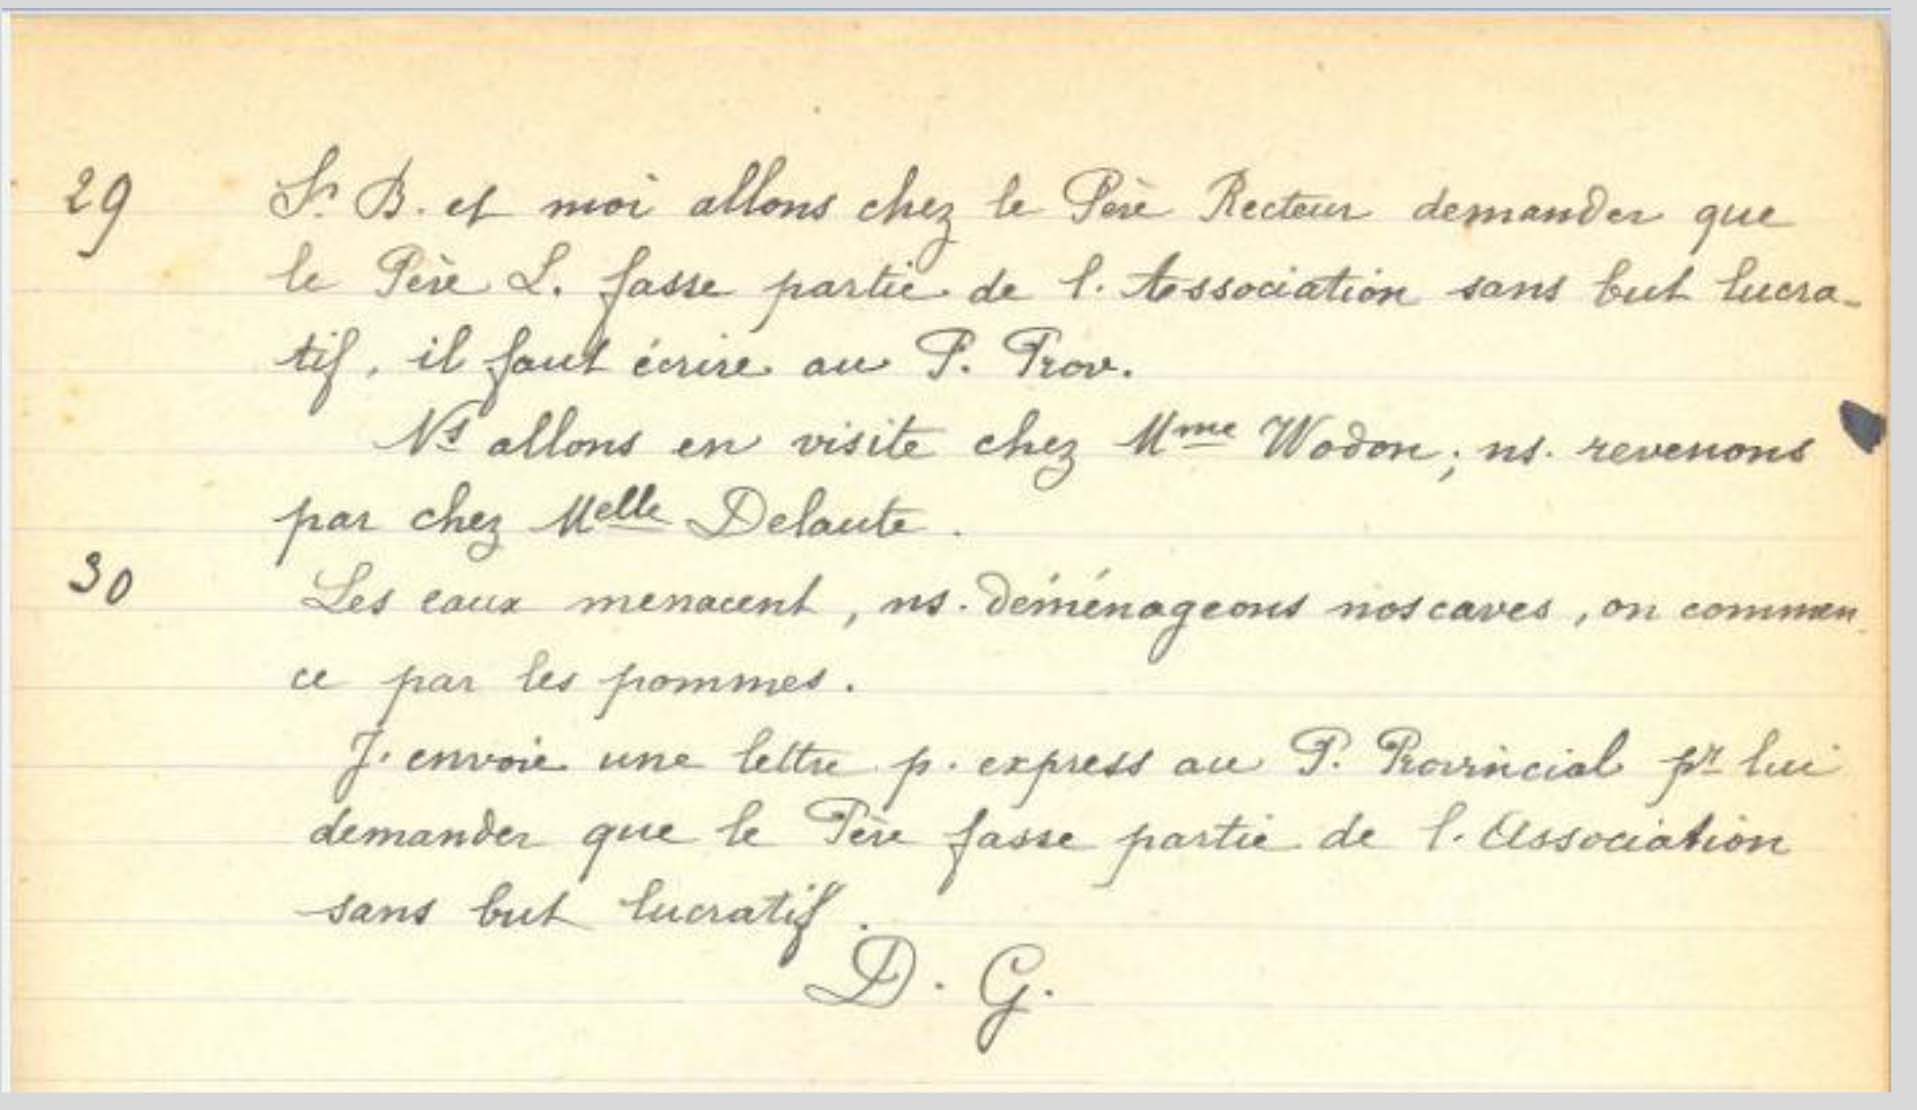 29 Sr. B. et moi allons chez le Père Recteur demander que
le Père L. fasse partie de l. Association sans but lucra-
tif, il faut écrire au P. Prov.
Ns allons en visite chez Mme Wodon ; ns. revenons
par chez Melle Delaute.
30 Les eaux menacent, ns. déménageons nos caves, on commen
ce par les pommes.
J. envoie une lettre p. express au P. Provincial pr lui
demander que le Père fasse partie de l. Association
sans but lucratif.
D. G.